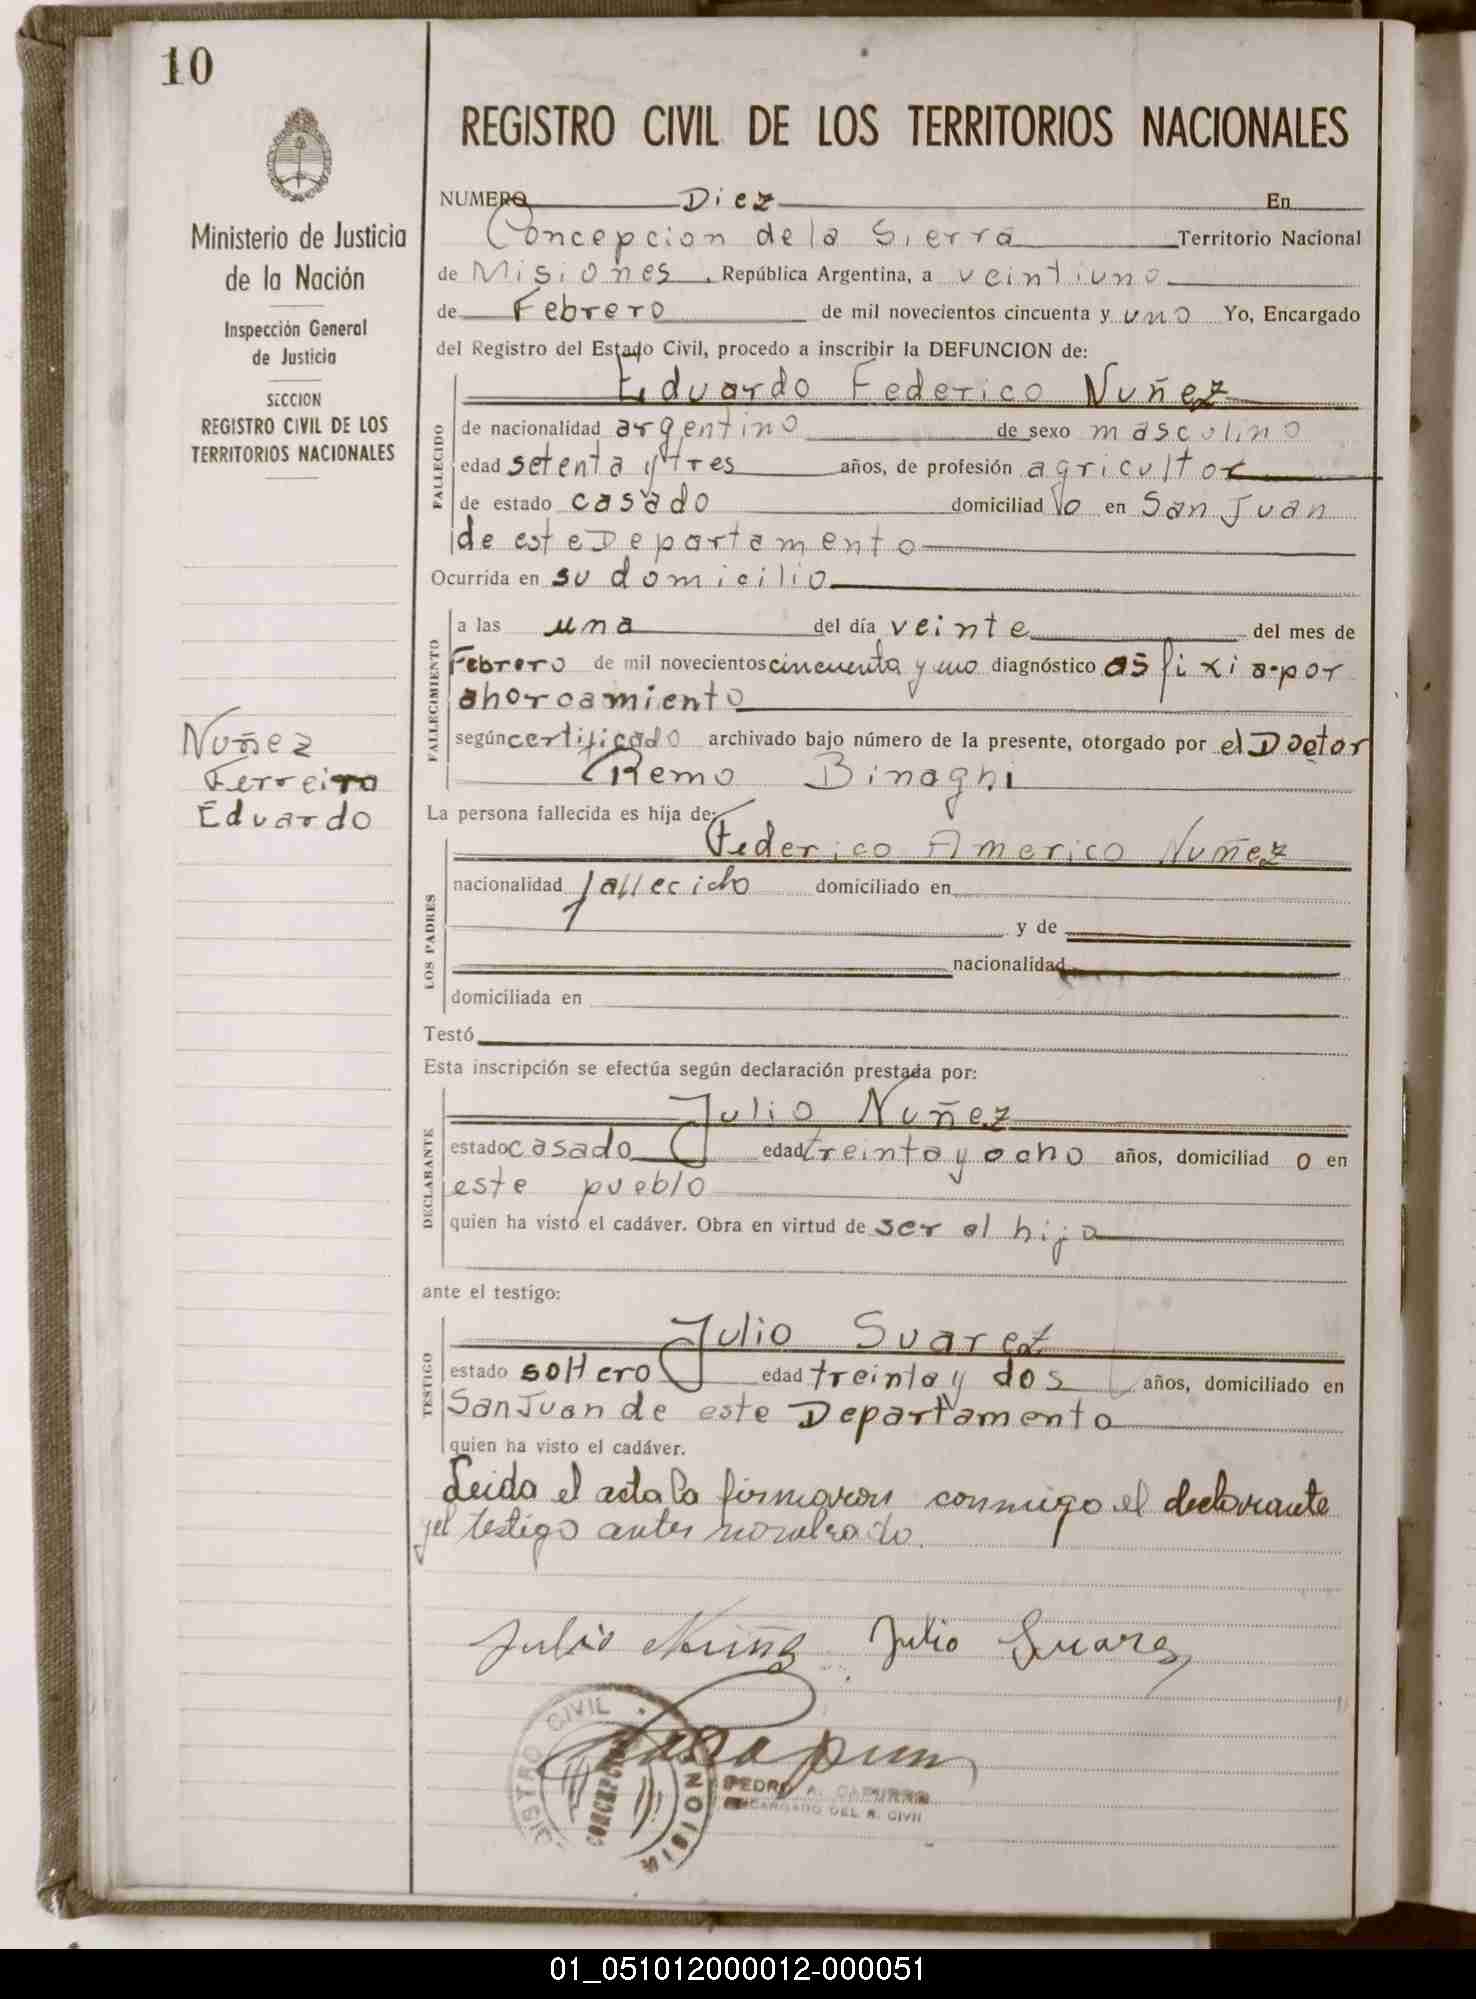 10
REGISTRO CIVIL DE LOS TERRITORIOS NACIONALES
Ministerio de Justicia
de la Nación
Inspección General
de Justicia
SECCION
REGISTRO CIVIL DE LOS
TERRITORIOS NACIONALES
NUMERO Diez En
Concepcion de la Sierra Territorio Nacional
de Misiones , República Argentina, a veintiuno
de Febrero de mil novecientos cincuenta y uno Yo, Encargado
del Registro del Estado Civil, procedo a inscribir la DEFUNCION de:
Eduardo Federico Nuñez
FALLECIDO
de nacionalidad argentino de sexo masculino
edad setenta y tres años, de profesión agricultor
de estado casado domiciliad o en San Juan
de este Departamento
Ocurrida en su domicilio
FALLECIMIENTO
a las una del día veinte del mes de
Febrero de mil novecientos cincuenta y uno diagnóstico asfixia-por
ahorcamiento
según certificado archivado bajo número de la presente, otorgado por el Doctor
Remo Binaghi
Nuñez
Ferreira
Eduardo
La persona fallecida es hija de:
Federico Americo Nuñez
LOS PADRES
nacionalidad fallecido domiciliado en
y de
nacionalidad
domiciliada en
Testó
Esta inscripción se efectúa según declaración prestada por:
Julio Nuñez
DECLARANTE
estado casado edad treinta y ocho años, domiciliad o en
este pueblo
quien ha visto el cadáver. Obra en virtud de ser el hijo
ante el testigo:
Julio Suarez
TESTIGO
estado soltero edad treinta y dos años, domiciliado en
San Juan de este Departamento
quien ha visto el cadáver.
Leida el acta la firmaron conmigo el declarante
y el testigo antes nombrado.
Julio Nuñez Julio Suarez
REGISTRO CIVIL
CONCEPCION
MISIONES
PEDRO A.
ENCARGADO DEL R. CIVIL
01_051012000012-000051